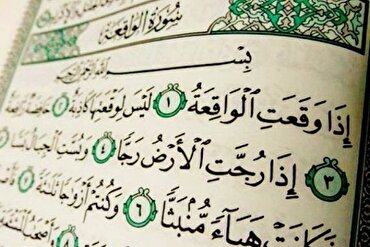 سُورَةُ الوَاقِعَةِ
بِسْمِ اللَّهِ الرَّحْمَٰنِ الرَّحِيمِ
إِذَا وَقَعَتِ ٱلْوَاقِعَةُ ١ لَيْسَ لِوَقْعَتِهَا كَاذِبَةٌ ٢ خَافِضَةٌ
٣ إِذَا رُجَّتِ ٱلْأَرْضُ رَجًّا ٤ وَبُسَّتِ ٱلْجِبَالُ
هَبَآءً مُّنۢبَثًّا ٦ وَكُنتُمْ أَزْوَٰجًا ثَلَٰثَةً ٧
٨ وَأَصْحَٰبُ